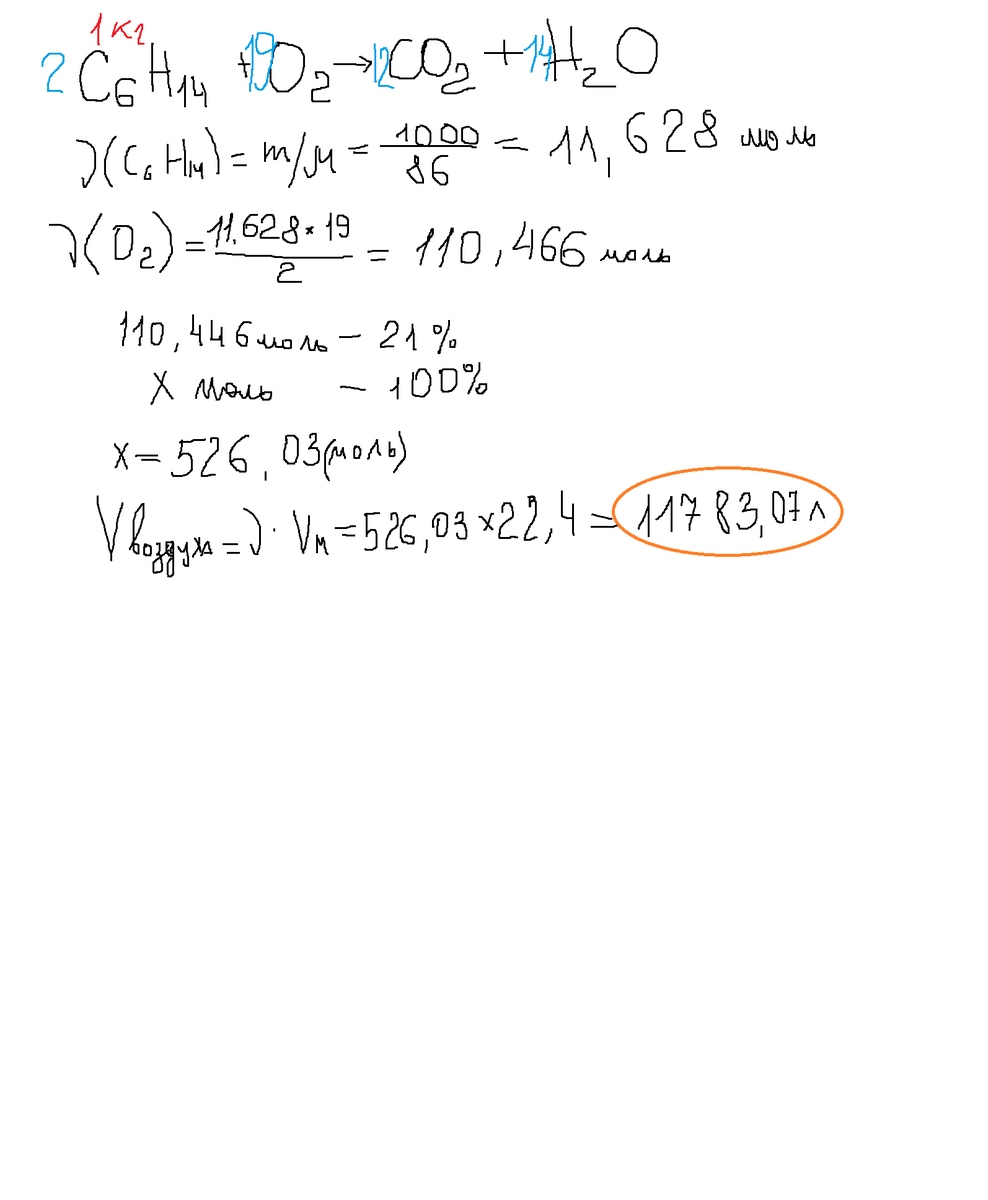 1 кг
2 C₆H₁₄ + 19O₂ → 12CO₂ + 14H₂O
ν(C₆H₁₄) = m/M = 1000/86 = 11,628 моль
ν(O₂) = 11,628 × 19/2 = 110,466 моль
110,446 моль – 21%
X моль – 100%
x = 526,03(моль)
Vвоздуха = ν · Vм = 526,03 × 22,4 = 11783,07 л